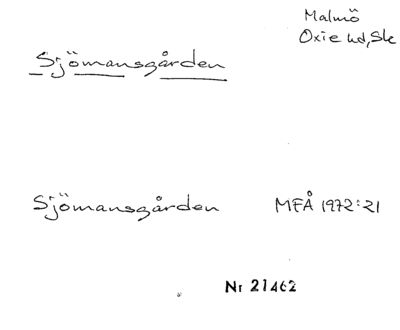 Malmö
Oxie hd, Sk
Sjömansgården
Sjömansgården MFÅ 1972:21
Nr 21462